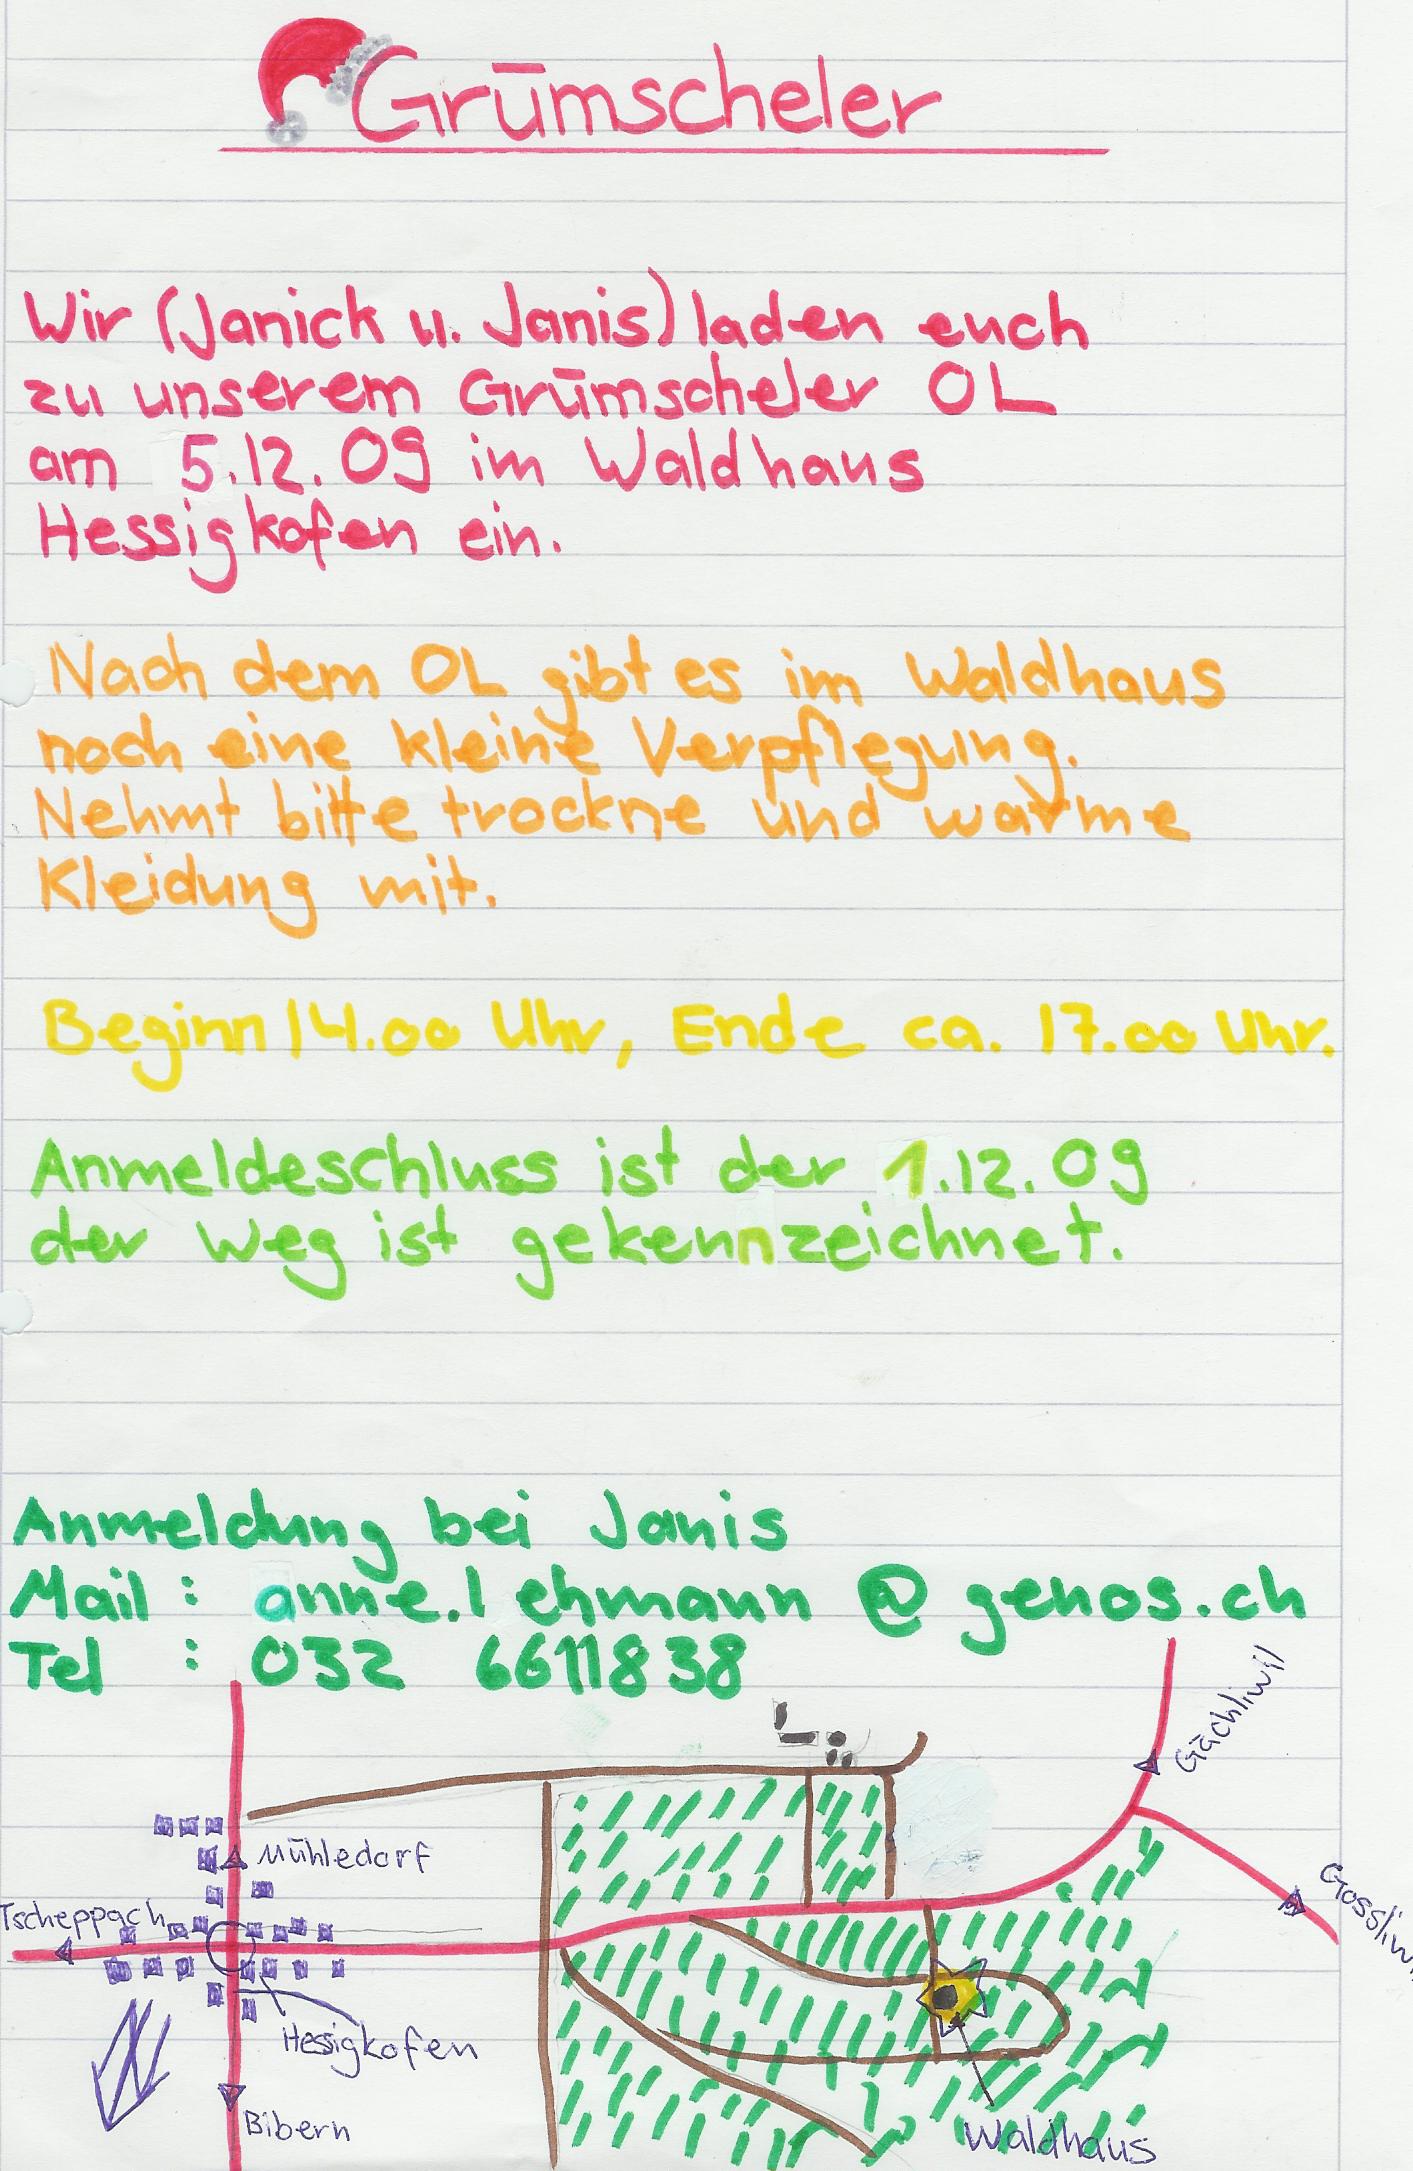 Grümscheler
Wir (Janick u. Janis) laden euch
zu unserem Grümscheler OL
am 5.12.09 im Waldhaus
Hessigkofen ein.
Nach dem OL gibt es im Waldhaus
noch eine kleine Verpflegung.
Nehmt bitte trockne und warme
Kleidung mit.
Beginn 14.00 Uhr, Ende ca. 17.00 Uhr.
Anmeldeschluss ist der 1.12.09
der Weg ist gekennzeichnet.
Anmeldung bei Janis
Mail : anne.lehmann@gehos.ch
Tel : 032 6611838
Gächliwil
Mühledorf
Tscheppach
Gossliwil
Hessigkofen
Bibern
Waldhaus